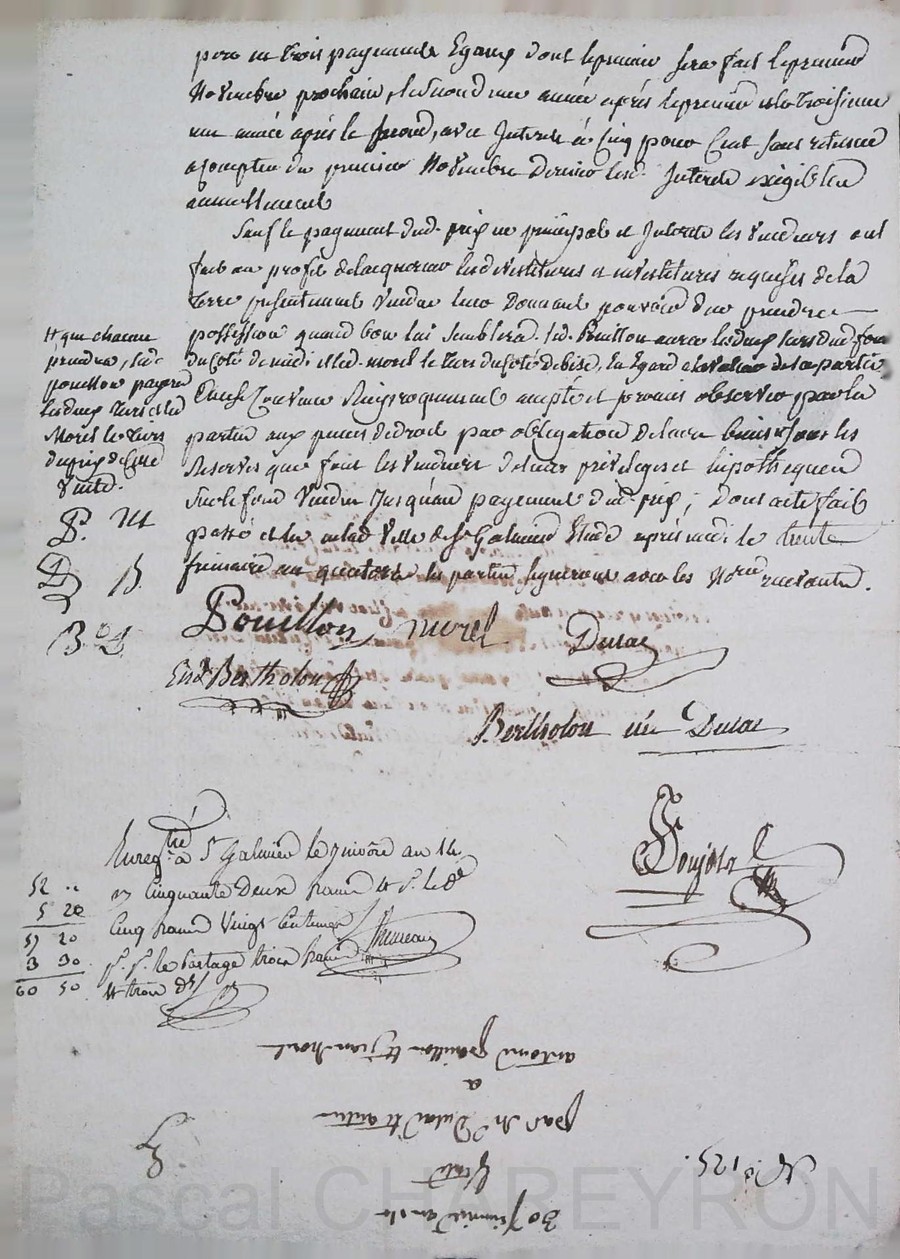 pero en trois payements Egaux dont le premier sera fait le premier
Novembre prochain, le second une année après le premier et le troisieme
une année après le second, avec Interets à Cinq pour Cent sans retenue
a compter du premier Novembre dernier lesd. Interets exigibles
annuellement
Sauf le payement dud. prix en principal et Interets les Vendeurs ont
fait au profit de lacquereur les devestitures et investitures requises de la
terre presentement Vendue leur Donnant pouvoir d'en prendre
possession quand bon lui Semblera. led. Pouillon aura les deux tiers dud. fond
du coté de midi et led. morel le tiers du coté de bise, Eu Egard a la valeur de la partie
Ainsi Convenu Reciproquement accepté et promis observer par les
parties aux peines de droit par obligation de leurs biens sous les
Reserves que font les Vendeurs de leurs privileges et hipotheques
sur le fond Vendu Jusqu'au payement dud. prix; Dont acte fait
passé et lu aud. Ville de St Galmier Etude après midi le trente
frimaire an quatorze les parties signeront avec les Nores recevants.
# que chacun
prendra, led.
pouillon payera
les deux tiers et led
Morel le tiers
du prix de lad.
Vente.
P. M
D B
B. D.
Pouillon morel Dulac
End Bertholon
Bertholon née Dulac
Enregtré à St Galmier le nivôse an 14
52 ..
r. Cinquante Deux francs # p. le de
5 20
Cinq francs Vingt Centimes
57 20
3 30
p. p. le partage trois francs
60 50
# trou ds
30 frimaire an 14
Vente
par Mr Dulac et autres
a
antoine pouillon et jean morel
No 125.
Pascal CHAREYRON